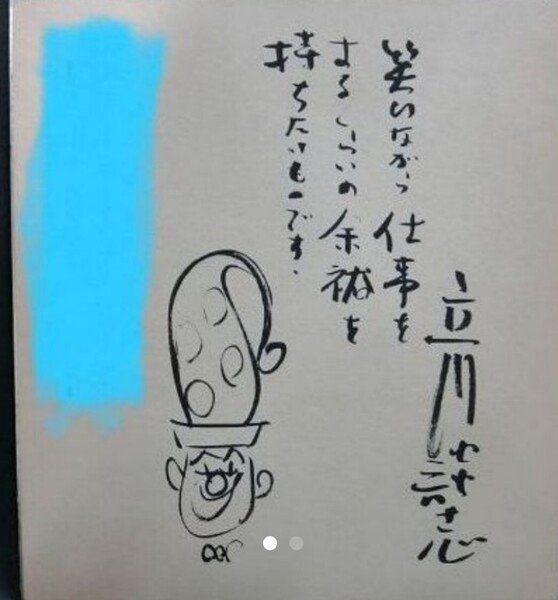 立川談志
笑いながら仕事を
するくらいの余裕を
持ちたいものです。